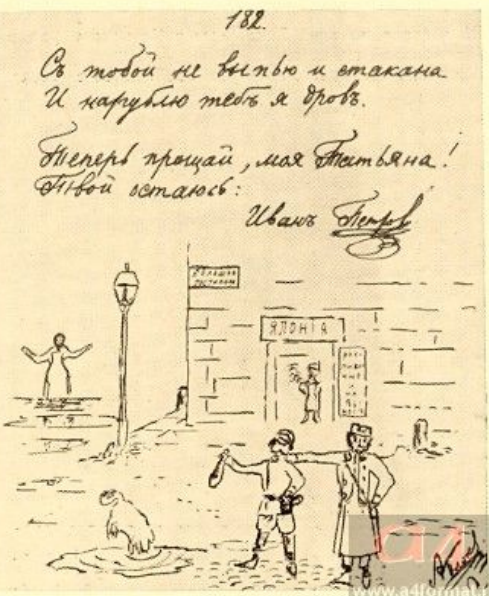 182.
Съ тобой не выпью и стакана
И нарублю тебѣ я дровъ.
Теперь прощай, моя Татьяна!
Твой остаюсь:
Иванъ Петров
ЯПОНIЯ
www.a4format.ru